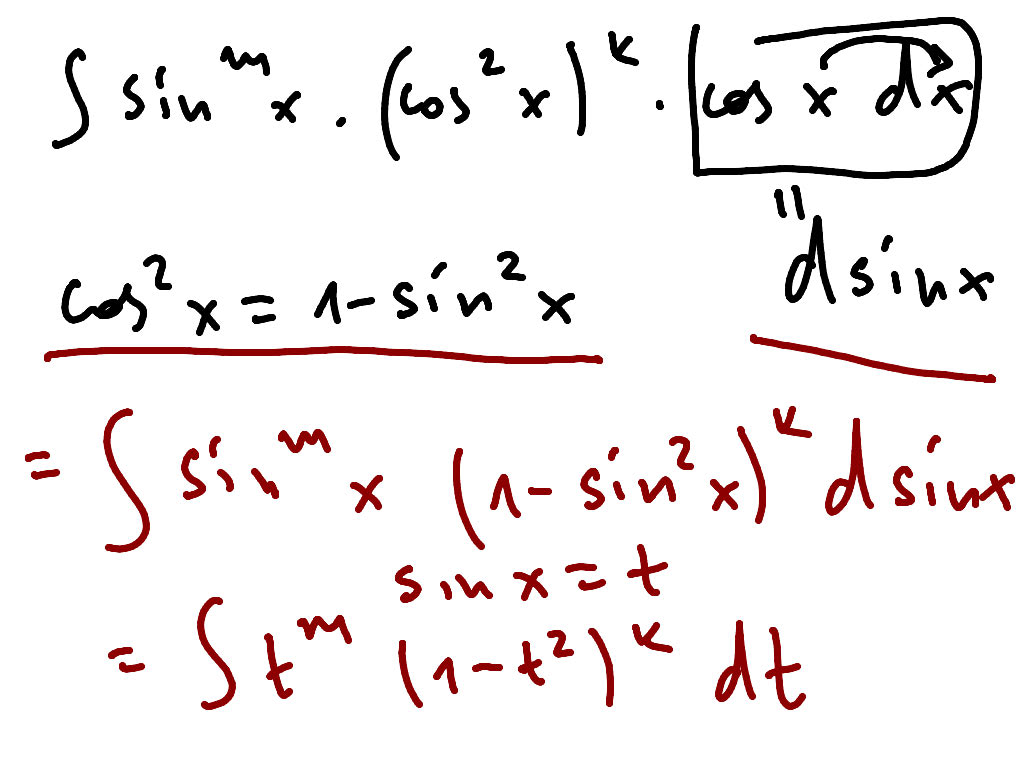 ∫ sin^m x · (cos² x)^k · cos x dx
"
d sin x
cos² x = 1 - sin² x
= ∫ sin^m x (1 - sin² x)^k d sin x
sin x = t
= ∫ t^m (1 - t²)^k dt